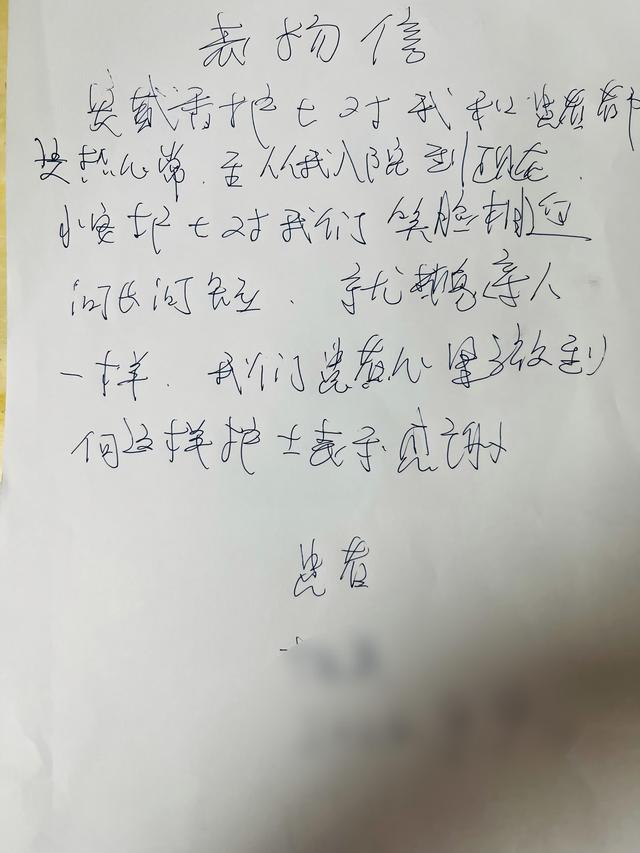 表扬信
护士对我和患者都
热心常.至从我入院到现在.
小安护士对我们笑脸相迎
问长问短.就携亲人
一样.我们患者心里
向这样护士表示感谢
患者